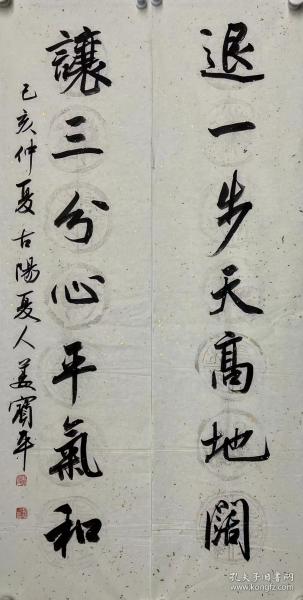 退一步天高地阔
讓三分心平氣和
己亥仲夏古陽夏人姜賓平
孔夫子旧书网